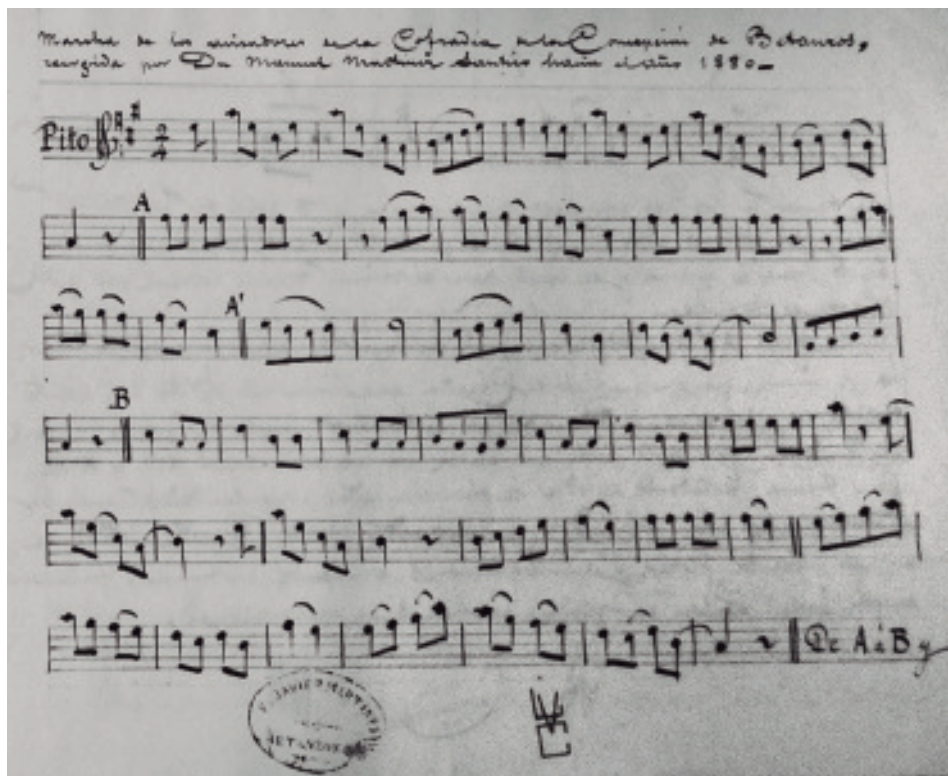 Marcha de los avisadores de la Cofradía de la Concepción de Betanzos,
recogida por Dn Manuel Martínez Santiso hacia el año 1880-
Pito 2/4
A
A'
B
De A á B y
JAVIER MARTINEZ
BETANZOS